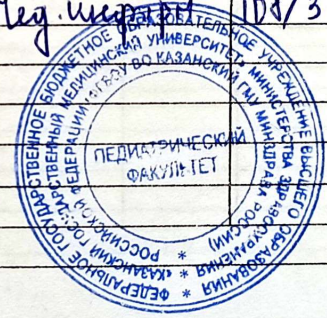 Мед. информ 108/3
ФЕДЕРАЛЬНОЕ ГОСУДАРСТВЕННОЕ БЮДЖЕТНОЕ ОБРАЗОВАТЕЛЬНОЕ УЧРЕЖДЕНИЕ ВЫСШЕГО ОБРАЗОВАНИЯ *
«КАЗАНСКИЙ ГОСУДАРСТВЕННЫЙ МЕДИЦИНСКИЙ УНИВЕРСИТЕТ» МИНИСТЕРСТВА ЗДРАВООХРАНЕНИЯ *
РОССИЙСКОЙ ФЕДЕРАЦИИ (ФГБОУ ВО КАЗАНСКИЙ ГМУ МИНЗДРАВА РОССИИ) *
ПЕДИАТРИЧЕСКИЙ
ФАКУЛЬТЕТ